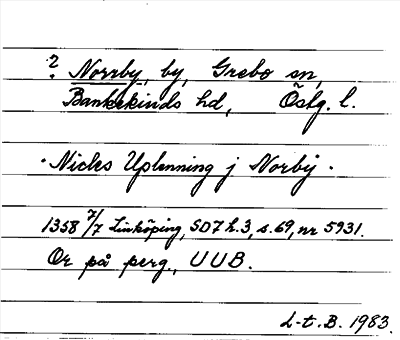 ? Norrby, by, Grebo sn,
Bankekinds hd, Östg. l.
"Nicles Uplenning j Norby".
1358 7/7 Linköping, SD7 h.3, s.69, nr 5931.
Or på perg., UUB.
L-t. B. 1983.